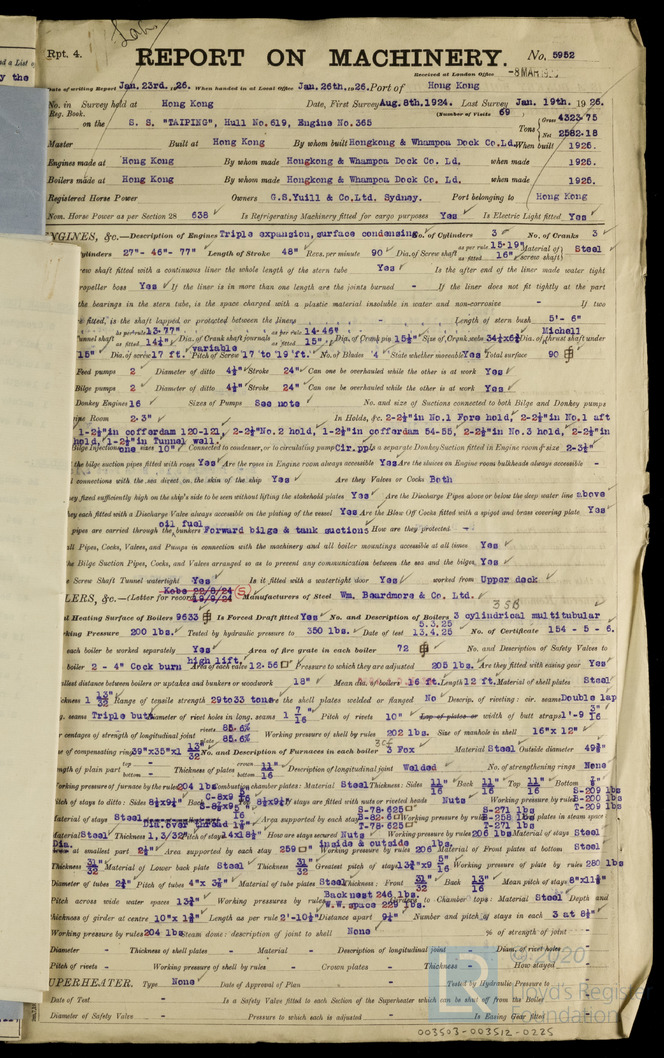 Rpt. 4.
REPORT ON MACHINERY. No. 5952
Received at London Office -8 MAR 19
Date of writing Report Jan. 23rd. 1926. When handed in at Local Office Jan. 26th. 1926. Port of Hong Kong
No. in Survey held at Hong Kong Date, First Survey Aug. 8th. 1924. Last Survey Jan. 19th. 1926.
Reg. Book. (Number of Visits 69)
on the S. S. "TAIPING", Hull No. 619, Engine No. 365 Tons Gross 4323.75 Net 2582.18
Master Built at Hong Kong By whom built Hongkong & Whampoa Dock Co. Ld. When built 1926.
Engines made at Hong Kong By whom made Hongkong & Whampoa Dock Co. Ld. when made 1926.
Boilers made at Hong Kong By whom made Hongkong & Whampoa Dock Co. Ld. when made 1926.
Registered Horse Power Owners G.S.Yuill & Co.Ltd. Sydney. Port belonging to Hong Kong
Nom. Horse Power as per Section 28 638 Is Refrigerating Machinery fitted for cargo purposes Yes Is Electric Light fitted Yes
ENGINES, &c.—Description of Engines Triple expansion, surface condensing. No. of Cylinders 3 No. of Cranks 3
Cylinders 27"- 46"- 77" Length of Stroke 48" Revs. per minute 90 Dia. of Screw shaft as per rule 15.19" as fitted 16" Material of screw shaft Steel
screw shaft fitted with a continuous liner the whole length of the stern tube Yes Is the after end of the liner made water tight
propeller boss Yes If the liner is in more than one length are the joints burned - If the liner does not fit tightly at the part
the bearings in the stern tube, is the space charged with a plastic material insoluble in water and non-corrosive - If two
fitted, is the shaft lapped or protected between the liners - Length of stern bush 5'- 6"
Tunnel shaft as per rule 13.77" as fitted 14¼" Dia. of Crank shaft journals as per rule 14.46" as fitted 15" Dia. of Crank pin 15½" Size of Crank webs 34½x6¾ Dia. of thrust shaft under Michell
15" Dia. of screw 17 ft. Pitch of Screw variable 17 to 19 ft. No. of Blades 4 State whether moveable Yes Total surface 90
Feed pumps 2 Diameter of ditto 4½" Stroke 24" Can one be overhauled while the other is at work Yes
Bilge pumps 2 Diameter of ditto 4½" Stroke 24" Can one be overhauled while the other is at work Yes
Donkey Engines 16 Sizes of Pumps See note No. and size of Suctions connected to both Bilge and Donkey pumps
Room 2-3" In Holds, &c. 2-2½" in No.1 Fore hold, 2-2½" in No.1 aft
1-2½" in cofferdam 120-121, 2-2½" No.2 hold, 1-2½" in cofferdam 54-55, 2-2½" in No.3 hold, 2-2½" in
hold, 1-2½" in Tunnel well.
Bilge Injections one sizes 10" Connected to condenser, or to circulating pump Cir. pp Is a separate Donkey Suction fitted in Engine room & size 2-3½"
the bilge suction pipes fitted with roses Yes Are the roses in Engine room always accessible Yes Are the sluices on Engine room bulkheads always accessible -
connections with the sea direct on the skin of the ship Yes Are they Valves or Cocks Both
they fixed sufficiently high on the ship's side to be seen without lifting the stokehold plates Yes Are the Discharge Pipes above or below the deep water line above
they each fitted with a Discharge Valve always accessible on the plating of the vessel Yes Are the Blow Off Cocks fitted with a spigot and brass covering plate Yes
pipes are carried through the oil fuel bunkers Forward bilge & tank suctions How are they protected -
all Pipes, Cocks, Valves, and Pumps in connection with the machinery and all boiler mountings accessible at all times Yes
the Bilge Suction Pipes, Cocks, and Valves arranged so as to prevent any communication between the sea and the bilges Yes
Screw Shaft Tunnel watertight Yes Is it fitted with a watertight door Yes worked from Upper deck
BOILERS, &c.—(Letter for record S) Kobe 22/8/24 19/9/24 Manufacturers of Steel Wm. Beardmore & Co. Ltd.
3 SB
Heating Surface of Boilers 9633 Is Forced Draft fitted Yes No. and Description of Boilers 3 cylindrical multitubular
Working Pressure 200 lbs. Tested by hydraulic pressure to 350 lbs. Date of test 5.3.25 13.4.25 No. of Certificate 154 - 5 - 6.
each boiler be worked separately Yes Area of fire grate in each boiler 72 No. and Description of Safety Valves to
boiler 2 - 4" Cockburn high lift. Area of each valve 12.56 Pressure to which they are adjusted 205 lbs. Are they fitted with easing gear Yes
smallest distance between boilers or uptakes and bunkers or woodwork 18" Mean dia. of boilers 16 ft. Length 12 ft. Material of shell plates Steel
Thickness 1 13/32 Range of tensile strength 29to33 tons Are the shell plates welded or flanged No Descrip. of riveting: cir. seams Double lap
long. seams Triple butt Diameter of rivet holes in long. seams 1 7/16 Pitch of rivets 10" Lap of plates or width of butt straps 1'-9 3/16
Percentages of strength of longitudinal joint rivets 85.6% plate 85.6% Working pressure of shell by rules 202 lbs. Size of manhole in shell 16"x 12"
Size of compensating ring 39"x35"x1 13/32 No. and Description of Furnaces in each boiler 3 Fox Material Steel Outside diameter 49¾"
Length of plain part top - bottom - Thickness of plates crown 11" bottom 16 Description of longitudinal joint Welded No. of strengthening rings None
Working pressure of furnace by the rules 204 lbs Combustion chamber plates: Material Steel Thickness: Sides 11/16 Back 11/16 Top 11/16 Bottom
Material of stays Steel
Material Steel Thickness 1,3/32 Pitch of stays 14x18½" How are stays secured Nuts Working pressure by rules 206 lbs Material of stays Steel
at smallest part 2½" Area supported by each stay 259 inside & outside Working pressure by rules 206 lbs. Material of Front plates at bottom Steel
Thickness 31/32 Material of Lower back plate Steel Thickness 31/32 Greatest pitch of stays Working pressure of plate by rules 280 lbs
Diameter of tubes 2¾" Pitch of tubes 4"x 3⅞" Material of tube plates Steel Thickness: Front 31/32 Back 13/16 Mean pitch of stays 8"x11¾"
Pitch across wide water spaces 13¾" Working pressures by rules Back nest 246 lbs. W.W. space 229 lbs. Girders to Chamber tops: Material Steel Depth and
thickness of girder at centre 10"x 1¾" Length as per rule 2'-10¼" Distance apart 9¼" Number and pitch of stays in each 3 at 8½"
Working pressure by rules 204 lbs Steam dome: description of joint to shell None % of strength of joint -
Diameter - Thickness of shell plates - Material - Description of longitudinal joint - Diam. of rivet holes -
Pitch of rivets - Working pressure of shell by rules - Crown plates - Thickness - How stayed -
SUPERHEATER. Type None Date of Approval of Plan - Tested by Hydraulic Pressure to -
Date of Test - Is a Safety Valve fitted to each Section of the Superheater which can be shut off from the Boiler -
Diameter of Safety Valve - Pressure to which each is adjusted - Is Easing Gear fitted
© 2020
Lloyd's Register
Foundation
003503-003512-0225